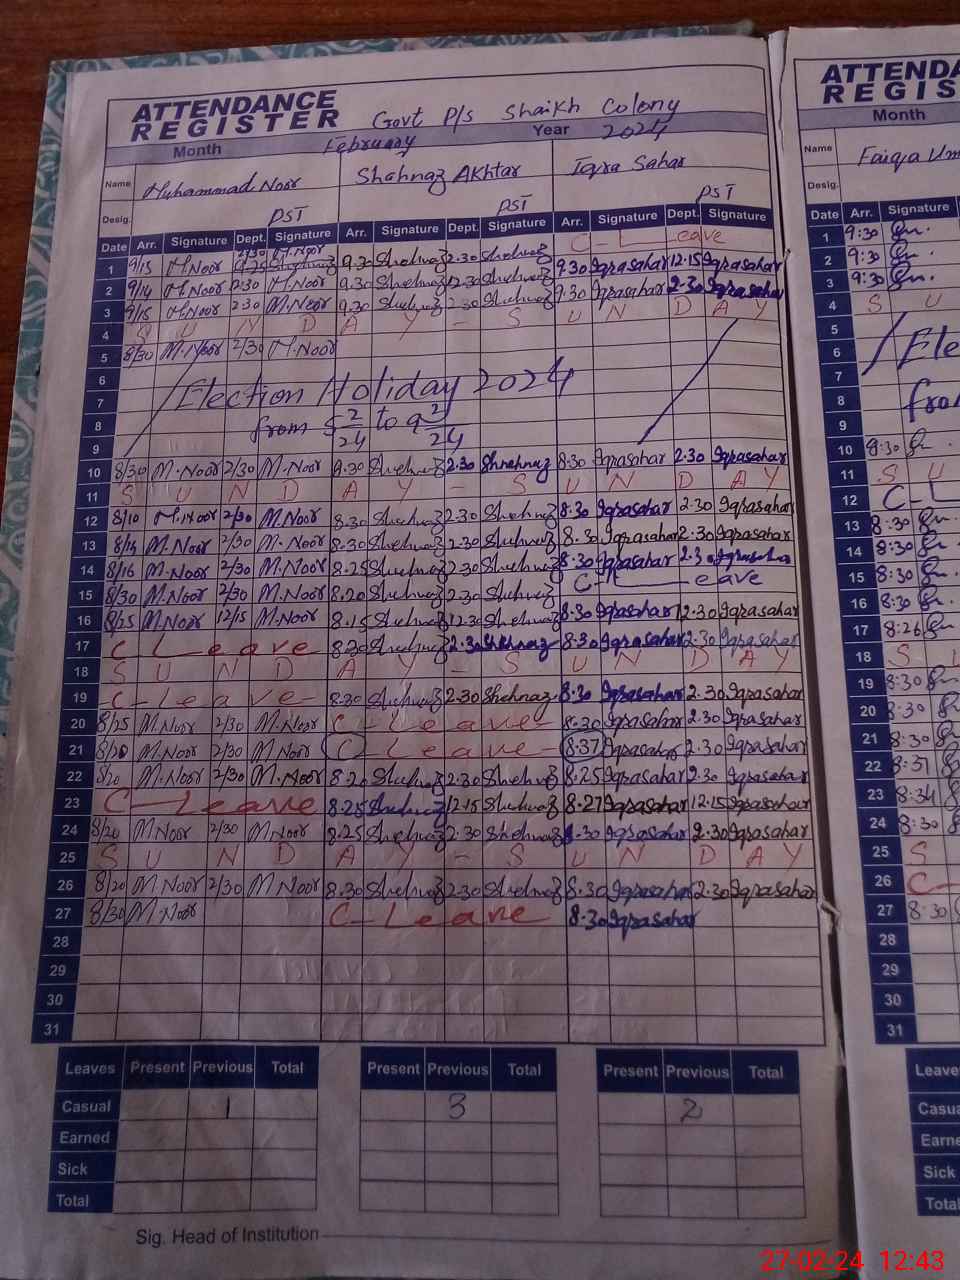 ATTENDANCE REGISTER Govt P/s Shaikh Colony
Month February Year 2024
Name Muhammad Noor Shahnaz Akhtar Iqra Sahar
Desig. PST PST PST
Date Arr. Signature Dept. Signature Arr. Signature Dept. Signature Arr. Signature Dept. Signature
1 9/15 M.Noor 2/30 M.Noor 9.30 Shehnaz 2.30 Shehnaz C-Leave
2 9/14 M.Noor 2/30 M.Noor 9.30 Shehnaz 12.30 Shehnaz 9.30 Iqrasahar 12.15 Iqrasahar
3 9/15 M.Noor 2.30 M.Noor 9.30 Shehnaz 2.30 Shehnaz 9.30 Iqrasahar 2.30 Iqrasahar
4 S U N D A Y - S U N D A Y
5 8/30 M.Noor 2/30 M.Noor
6
7 Election Holiday 2024
8 from 5 2/24 to 9 2/24
9
10 8/30 M.Noor 2/30 M.Noor 9.30 Shehnaz 2.30 Shehnaz 8.30 Iqrasahar 2.30 Iqrasahar
11 S U N D A Y - S U N D A Y
12 8/10 M.Noor 2/30 M.Noor 8.30 Shehnaz 2.30 Shehnaz 8.30 Iqrasahar 2.30 Iqrasahar
13 8/14 M.Noor 2/30 M.Noor 8.30 Shehnaz 2.30 Shehnaz 8.30 Iqrasahar 2.30 Iqrasahar
14 8/16 M.Noor 2/30 M.Noor 8.25 Shehnaz 2.30 Shehnaz 8.30 Iqrasahar 2.30 Iqrasahar
15 8/30 M.Noor 2/30 M.Noor 8.20 Shehnaz 2.30 Shehnaz C-Leave
16 8/25 M.Noor 12/15 M.Noor 8.15 Shehnaz 12.30 Shehnaz 8.30 Iqrasahar 12.30 Iqrasahar
17 C Leave 8.30 Shehnaz 2.30 Shehnaz 8.30 Iqrasahar 2.30 Iqrasahar
18 S U N D A Y - S U N D A Y
19 -C-Leave- 8.30 Shehnaz 2.30 Shehnaz 8.30 Iqrasahar 2.30 Iqrasahar
20 8/25 M.Noor 2/30 M.Noor C-Leave- 8.30 Iqrasahar 2.30 Iqrasahar
21 8/20 M.Noor 2/30 M.Noor C-Leave- 8.37 Iqrasahar 2.30 Iqrasahar
22 8/20 M.Noor 2/30 M.Noor 8.20 Shehnaz 2.30 Shehnaz 8.25 Iqrasahar 2.30 Iqrasahar
23 C-Leave 8.25 Shehnaz 12.15 Shehnaz 8.27 Iqrasahar 12.15 Iqrasahar
24 8/20 M.Noor 2/30 M.Noor 8.25 Shehnaz 2.30 Shehnaz 8.30 Iqrasahar 2.30 Iqrasahar
25 S U N D A Y - S U N D A Y
26 8/20 M.Noor 2/30 M.Noor 8.30 Shehnaz 2.30 Shehnaz 8.30 Iqrasahar 2.30 Iqrasahar
27 8/30 M.Noor C-Leave 8.30 Iqrasahar
28
29
30
31
Leaves Present Previous Total Present Previous Total Present Previous Total
Casual 1 3 2
Earned
Sick
Total
Sig. Head of Institution
ATTENDA
REGIS
Month
Name Faiqa Um
Desig.
Date Arr. Signature
1 9:30
2 9:30
3 9:30
4 S U
5
6 Ele
7
8 fro
9
10 8:30
11 S U
12 C-L
13 8:30
14 8:30
15 8:30
16 8:30
17 8:26
18 S U
19 8:30
20 8:30
21 8:30
22 8:37
23 8:34
24 8:30
25 S
26 C-
27 8:30
28
29
30
31
Leave
Casua
Earne
Sick
Total
27-02-24 12:43